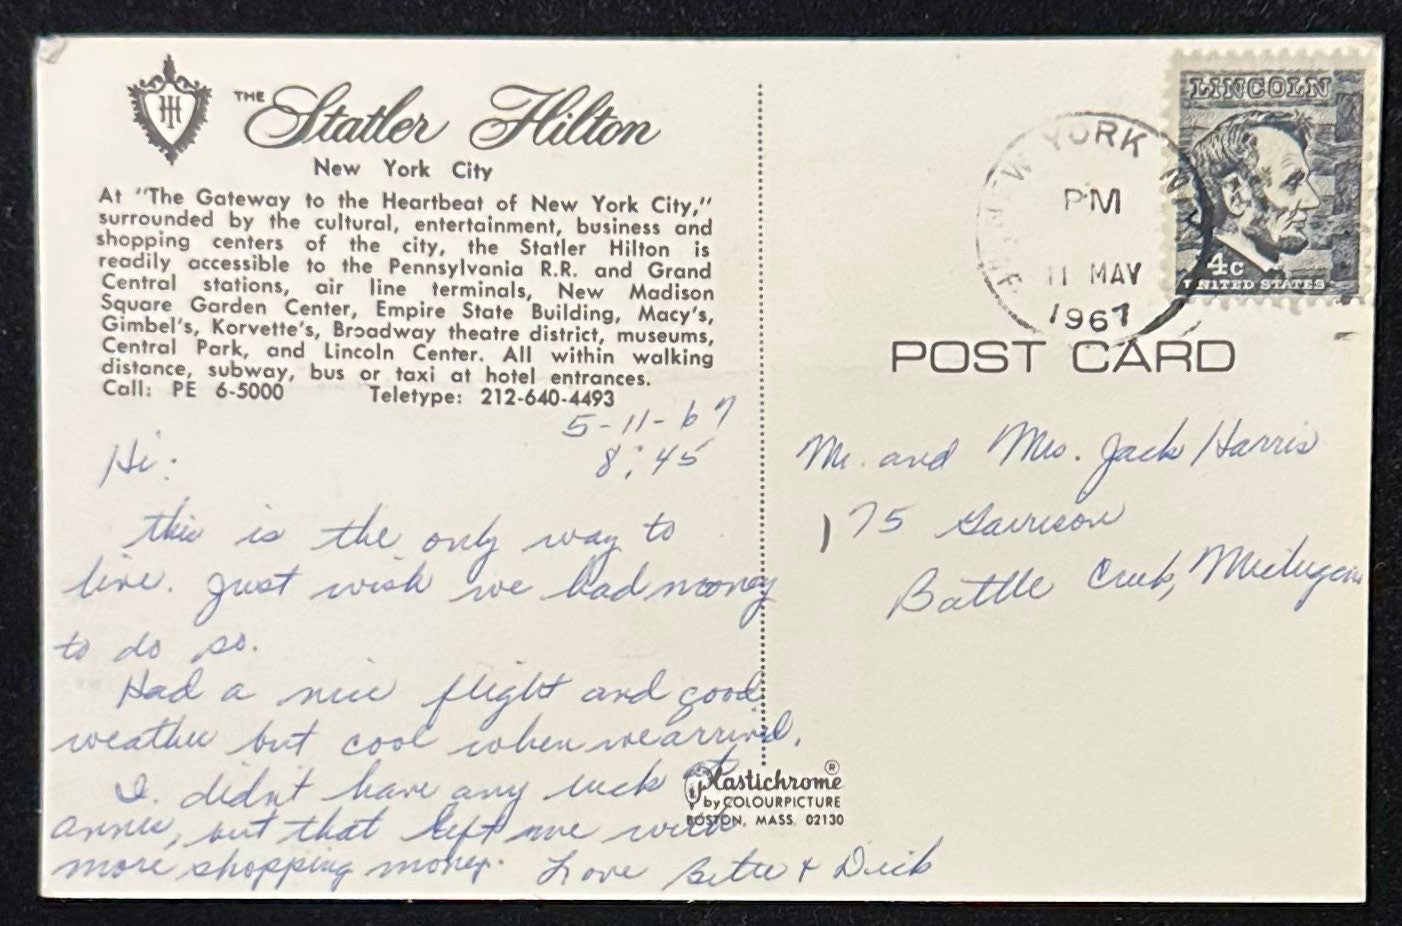 THE Statler Hilton
New York City
At "The Gateway to the Heartbeat of New York City,"
surrounded by the cultural, entertainment, business and
shopping centers of the city, the Statler Hilton is
readily accessible to the Pennsylvania R.R. and Grand
Central stations, air line terminals, New Madison
Square Garden Center, Empire State Building, Macy's,
Gimbel's, Korvette's, Broadway theatre district, museums,
Central Park, and Lincoln Center. All within walking
distance, subway, bus or taxi at hotel entrances.
Call: PE 6-5000 Teletype: 212-640-4493
5-11-67
8:45
Hi:
this is the only way to
live. Just wish we had money
to do so.
Had a nice flight and good
weather but cool when we arrived.
I didn't have any luck at
but that left me with
more shopping money. Love Bette & Dick
Plastichrome®
by COLOURPICTURE
BOSTON, MASS. 02130
LINCOLN
4c
UNITED STATES
NEW YORK, N.Y.
PM
11 MAY
1967
POST CARD
Mr. and Mrs. Jack Harris
175 Garrison
Battle Creek, Michigan